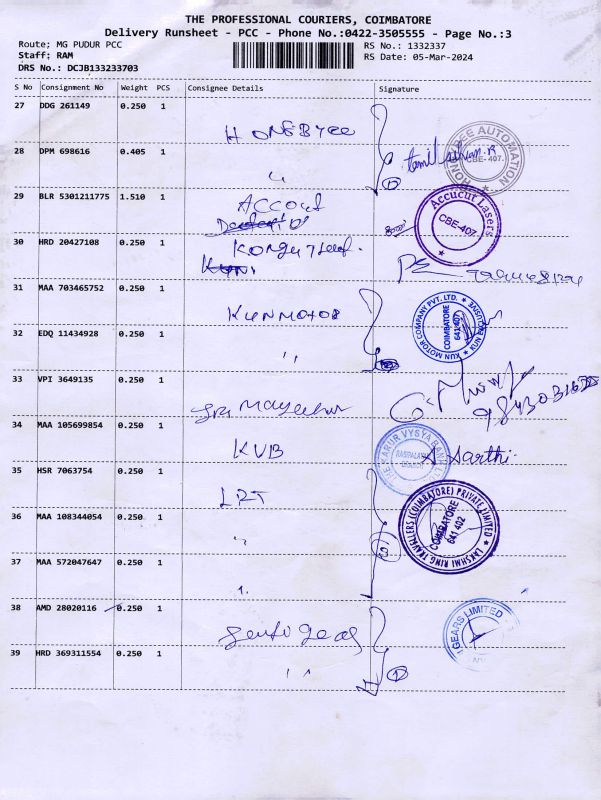 THE PROFESSIONAL COURIERS, COIMBATORE
Delivery Runsheet - PCC - Phone No.:0422-3505555 - Page No.:3
Route; MG PUDUR PCC
RS No.: 1332337
Staff; RAM
RS Date: 05-Mar-2024
DRS No.: DCJB133233703
S No Consignment No Weight PCS Consignee Details Signature
27 DDG 261149 0.250 1
HONEBYEE
28 DPM 698616 0.405 1
〃
HONEYBEE AUTOMATION
CBE-407.
29 BLR 5301211775 1.510 1
Accout
Accucut Lasers
CBE-407.
30 HRD 20427108 0.250 1
31 MAA 703465752 0.250 1
KUNMOTOR
KUN MOTOR COMPANY PVT. LTD.
KUN EXCLUSIVE
COIMBATORE
641 402
32 EDQ 11434928 0.250 1
〃
33 VPI 3649135 0.250 1
Sri
34 MAA 105699854 0.250 1
KVB
THE KARUR VYSYA BANK LTD
Sarthi.
35 HSR 7063754 0.250 1
LRT
LAKSHMI RING TRAVELLERS (COIMBATORE) PRIVATE LIMITED
COIMBATORE
641 402
36 MAA 108344054 0.250 1
〃
37 MAA 572047647 0.250 1
38 AMD 28020116 0.250 1
gears
GEARS LIMITED
39 HRD 369311554 0.250 1
〃